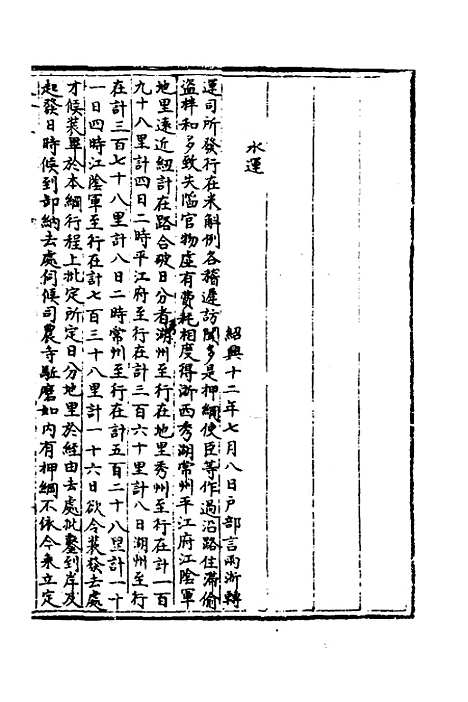 水運
紹興十二年七月八日戶部言兩浙轉
運司所發行在米斛例各稽遲訪聞多是押綱使臣等作過沿路住滯偷
盜拌和多致失陷官物虛有費耗相度得浙西秀湖常州平江府江陰軍
地里遠近紐計在路合破日分者湖州至行在地里秀州至行在計一百
九十八里計四日二時平江府至行在計三百六十里計八日湖州至行
在計三百七十八里計八日二時常州至行在計五百二十八里計一十
一日四時江陰軍至行在計七百三十八里計一十六日欲令裝發去處
才候裝畢於本綱行程上批定所定日分地里於經由去處批鑿到岸及
起發日時候到卸納去處伺候司農寺驅磨如內有押綱不依今來立定